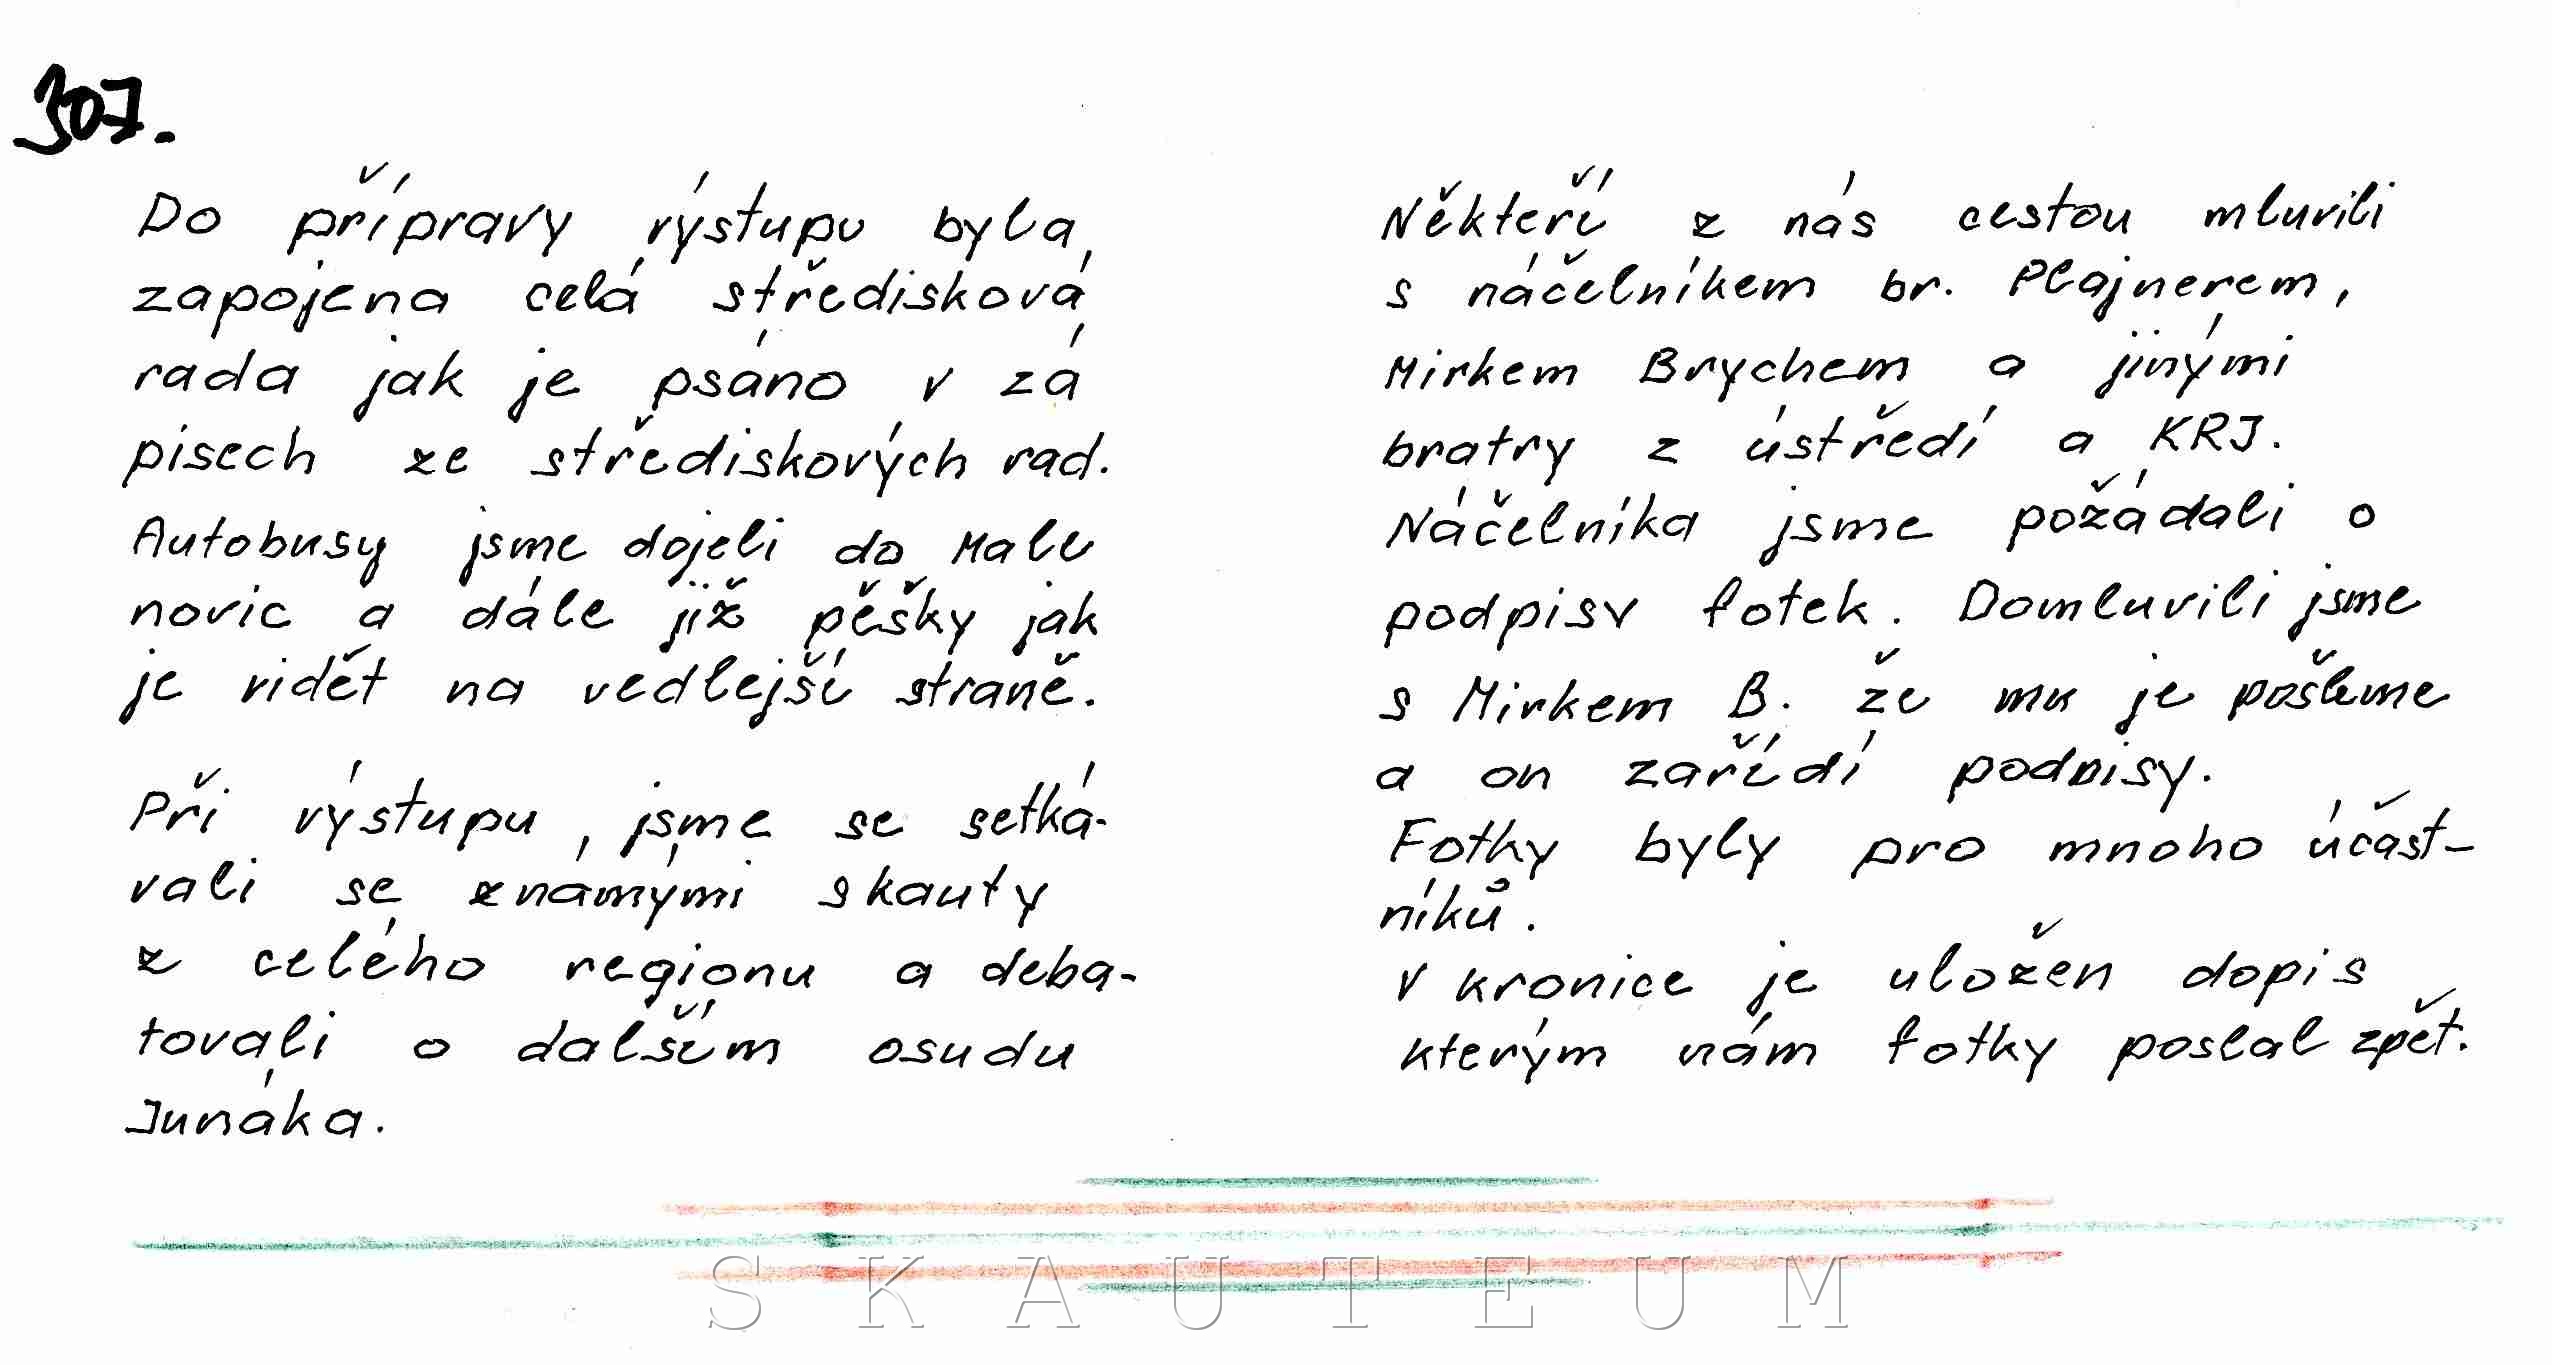 307.
Do přípravy výstupu byla
zapojena celá středisková
rada jak je psáno v zá
pisech ze střediskových rad.
Autobusy jsme dojeli do Male
novic a dále již pěšky jak
je vidět na vedlejší straně.
Při výstupu, jsme se setká-
vali se známými skauty
z celého regionu a deba-
tovali o dalším osudu
Junáka.
Někteří z nás cestou mluvili
s náčelníkem br. Plajnerem,
Mirkem Brychem a jinými
bratry z ústředí a KRJ.
Náčelníka jsme požádali o
podpisy fotek. Domluvili jsme
s Mirkem B. že mu je pošleme
a on zařídí podpisy.
Fotky byly pro mnoho účast-
níků.
V kronice je uložen dopis
kterým nám fotky poslal zpět.
SKAUTEUM